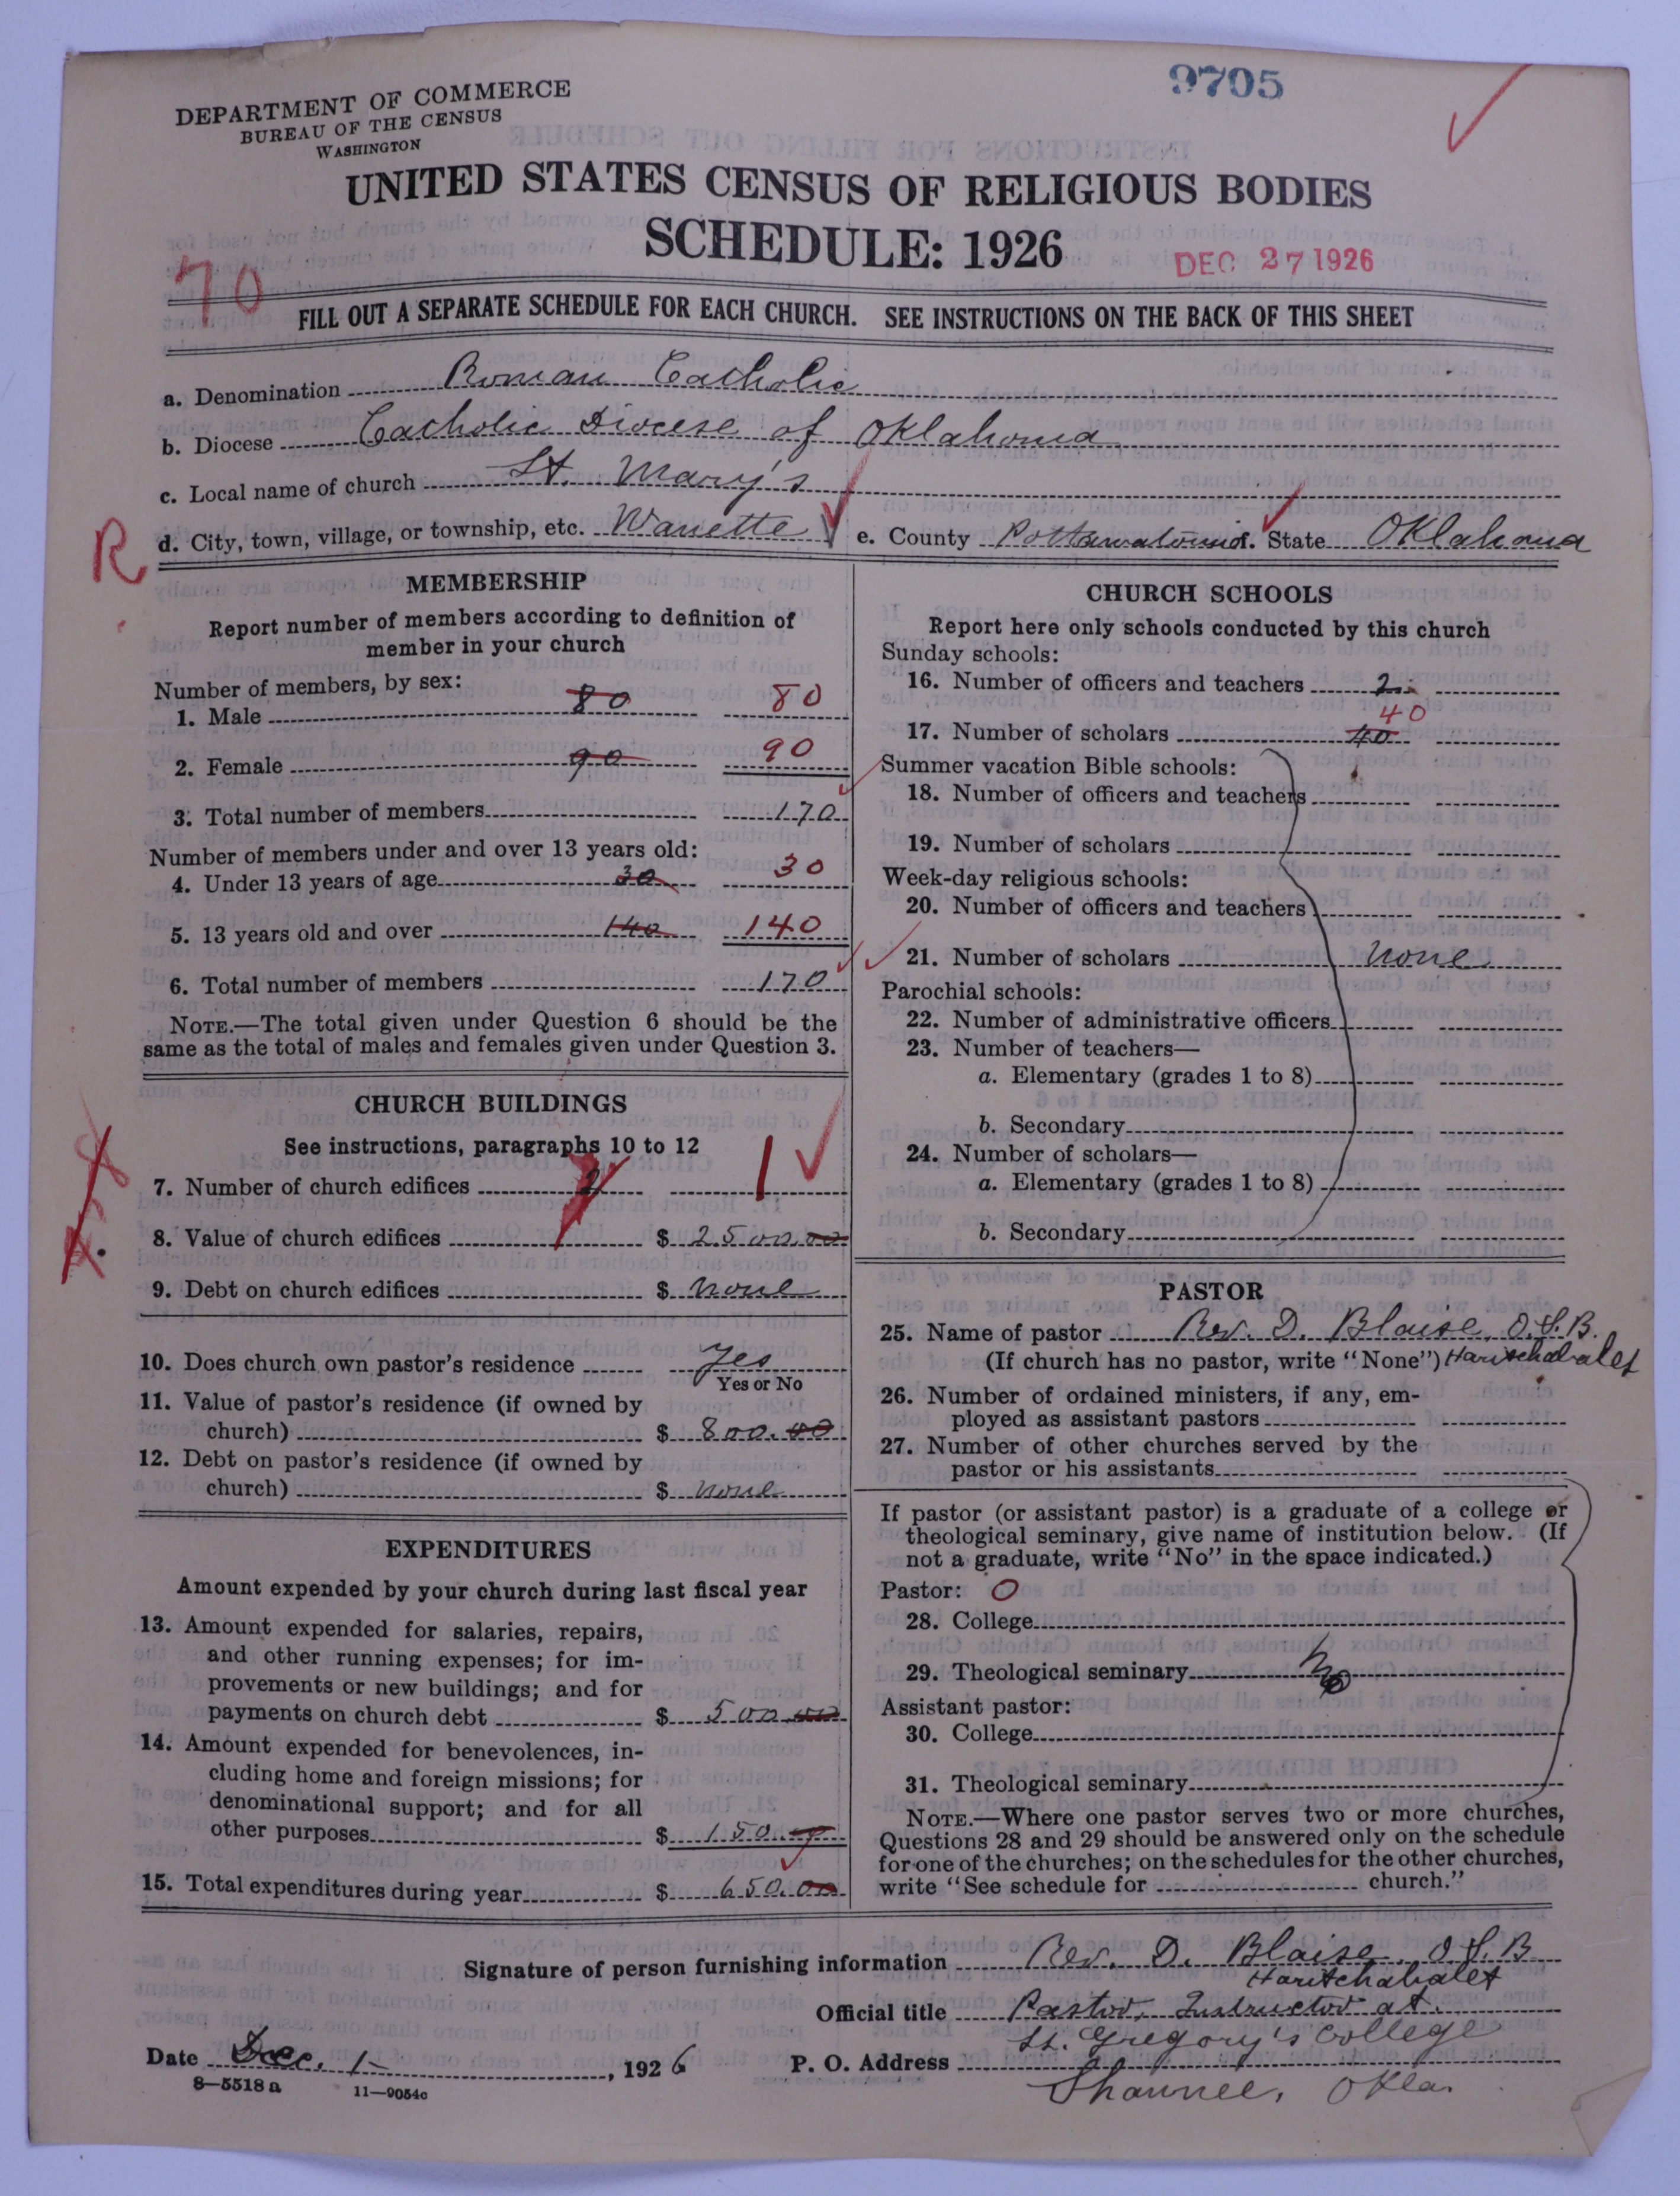 9705
DEPARTMENT OF COMMERCE
BUREAU OF THE CENSUS
WASHINGTON
UNITED STATES CENSUS OF RELIGIOUS BODIES
SCHEDULE: 1926
DEC 27 1926
70
FILL OUT A SEPARATE SCHEDULE FOR EACH CHURCH. SEE INSTRUCTIONS ON THE BACK OF THIS SHEET
a. Denomination Roman Catholic
b. Diocese Catholic Diocese of Oklahoma
c. Local name of church St. Mary's
R
d. City, town, village, or township, etc. Wanette e. County Pottawatomie f. State Oklahoma
MEMBERSHIP
Report number of members according to definition of
member in your church
Number of members, by sex:
1. Male 80 80
2. Female 90 90
3. Total number of members 170
Number of members under and over 13 years old:
4. Under 13 years of age 30 30
5. 13 years old and over 140 140
6. Total number of members 170
NOTE.—The total given under Question 6 should be the
same as the total of males and females given under Question 3.
CHURCH BUILDINGS
See instructions, paragraphs 10 to 12
7. Number of church edifices 2 1
8. Value of church edifices $ 2500.00
9. Debt on church edifices $ none
10. Does church own pastor's residence Yes
Yes or No
11. Value of pastor's residence (if owned by
church) $ 800.00
12. Debt on pastor's residence (if owned by
church) $ none
EXPENDITURES
Amount expended by your church during last fiscal year
13. Amount expended for salaries, repairs,
and other running expenses; for im-
provements or new buildings; and for
payments on church debt $ 500 00
14. Amount expended for benevolences, in-
cluding home and foreign missions; for
denominational support; and for all
other purposes $ 150.
15. Total expenditures during year $ 650.00
CHURCH SCHOOLS
Report here only schools conducted by this church
Sunday schools:
16. Number of officers and teachers 2
40
17. Number of scholars 40
Summer vacation Bible schools:
18. Number of officers and teachers
19. Number of scholars
Week-day religious schools:
20. Number of officers and teachers
21. Number of scholars none
Parochial schools:
22. Number of administrative officers
23. Number of teachers—
a. Elementary (grades 1 to 8)
b. Secondary
24. Number of scholars—
a. Elementary (grades 1 to 8)
b. Secondary
PASTOR
25. Name of pastor Rev. D. Blaise, O.S.B.
(If church has no pastor, write "None") Haritchabalet
26. Number of ordained ministers, if any, em-
ployed as assistant pastors
27. Number of other churches served by the
pastor or his assistants
If pastor (or assistant pastor) is a graduate of a college or
theological seminary, give name of institution below. (If
not a graduate, write "No" in the space indicated.)
Pastor: O
28. College
29. Theological seminary No
Assistant pastor:
30. College
31. Theological seminary
NOTE.—Where one pastor serves two or more churches,
Questions 28 and 29 should be answered only on the schedule
for one of the churches; on the schedules for the other churches,
write "See schedule for church."
Signature of person furnishing information Rev. D. Blaise, O.S.B
Haritchabalet
Official title Pastor, Instructor at
St. Gregory's College
Date Dec. 1 , 1926 P. O. Address
Shawnee, Okla.
8—5518 a 11—9054c